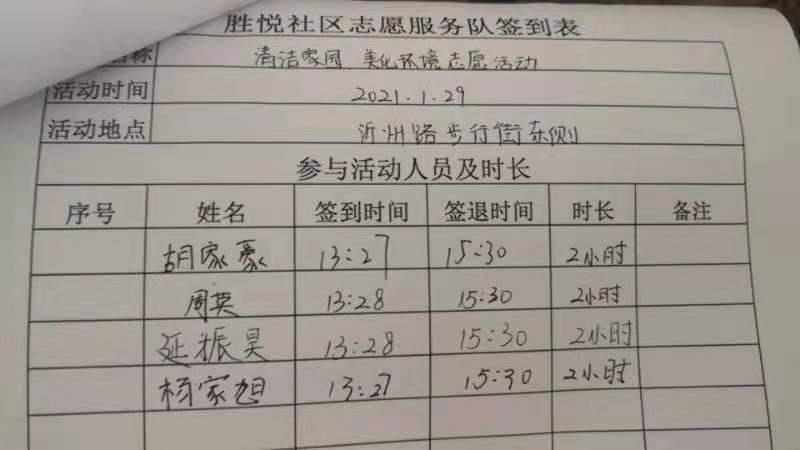 胜悦社区志愿服务队签到表
名称 清洁家园 美化环境志愿活动
活动时间 2021.1.29
活动地点 沂州路步行街东侧
参与活动人员及时长
序号 姓名 签到时间 签退时间 时长 备注
胡家豪 13:27 15:30 2小时
周英 13:28 15:30 2小时
延振昊 13:28 15:30 2小时
杨家旭 13:27 15:30 2小时